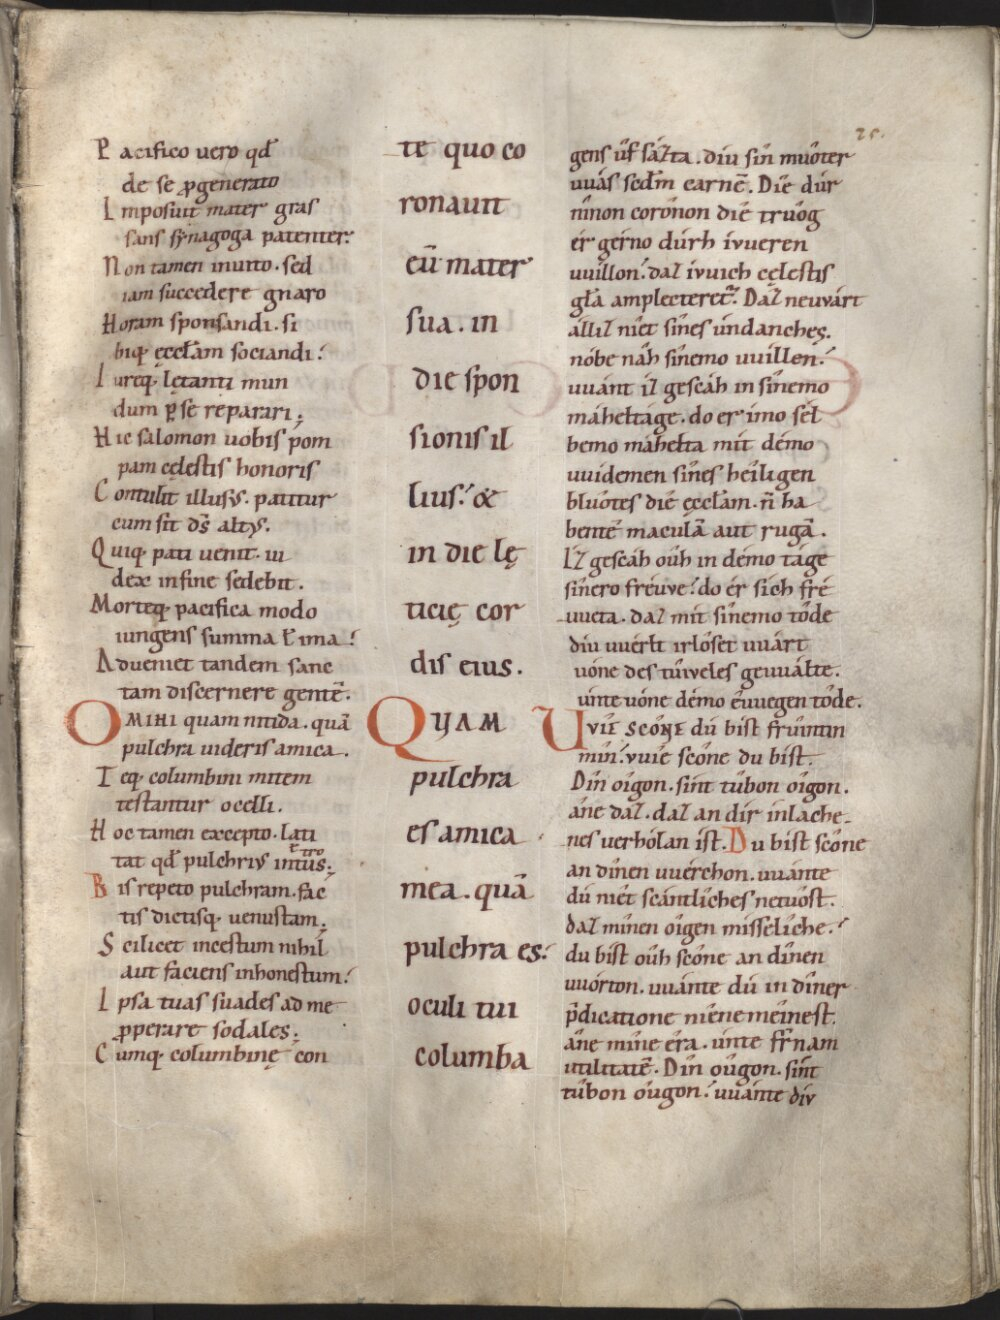 25.
P acifico uero qđ
de se ꝓgenerato
I mposuit mater gras
sans synagoga patenter.
N on tamen inuito. sed
iam succedere gnaro
H oram sponsandi. si
biq; ęccłam sociandi.
I ureq; lętanti mun
dum ꝑ se reparari.
H ic salomon uobis pom
pam cęlestis honoris
C ontulit illusus. patitur
cum sit ds̄ altus.
Q uiq; pati uenit. iu
dex in fine sedebit.
M orteq; pacifica modo
iungens summa ł ima.
A dueniet tandem sane
tam discernere gentē.
O MIHI quam nitida. quā
pulchra uideris amica.
T eq; columbini mitem
testantur ocelli.
H oc tamen excepto. lati
tat qđ pulchrius intus.
B is repeto pulchram. fac
tis dictisq; uenustam.
S cilicet incestum nihil
aut faciens inhonestum.
I psa tuas suades ad me
ꝓperare sodales.
C umq; columbinę con
te quo co
ronauit
eū mater
sua. in
die spon
sionis il
lius. &
in die lę
ticię cor
dis eius.
QUAM
pulchra
es amica
mea. quā
pulchra es.
oculi tui
columba
gens ûf sázta. diu sin mûoter
uuás sedm̄ carnē. Die dúr
ninon corônon die trûog
ér gérno dúrh íuueren
uuíllon. daz íuuich cęlestis
gła amplecteret. Daz neuuárt
állíz níet sînes úndanches.
nóbe náh sînemo uuíllen.
uuánt iz gescáh in sînemo
máheltáge. do er imo sél
bemo máhelta mít démo
uuídemen sînes heîligen
blûotes die ęccłam. n̄ ha
bentē maculā aut rugā.
Iz gescáh oûh in démo táge
sînero fréuue. do ér sích fré
uueta. daz mít sînemo tôde
díu uuérlt irlôset uuárt
uóne des tûiueles geuuálte.
únte uóne démo éuuegen tôde.
UVIE SCONE dú bist frúintin
mîn. vuîe scône du bist.
Dîn oîgon. sint tûbon oîgon.
âne daz. daz an dír ínlache
nes uerhólan íst. Du bist scône
an dînen uuérchon. uuánte
dú níet scántlîches netûost.
daz mînen oîgen misselîche.
du bíst oûh scône an dînen
uuórton. uuánte dú in dîner
p̄dicatione niene meînest.
âne mîne éra. únte fr̄nam
utilitatē. Dîn oûgon. sínt
tûbon oûgon. uuánte díu